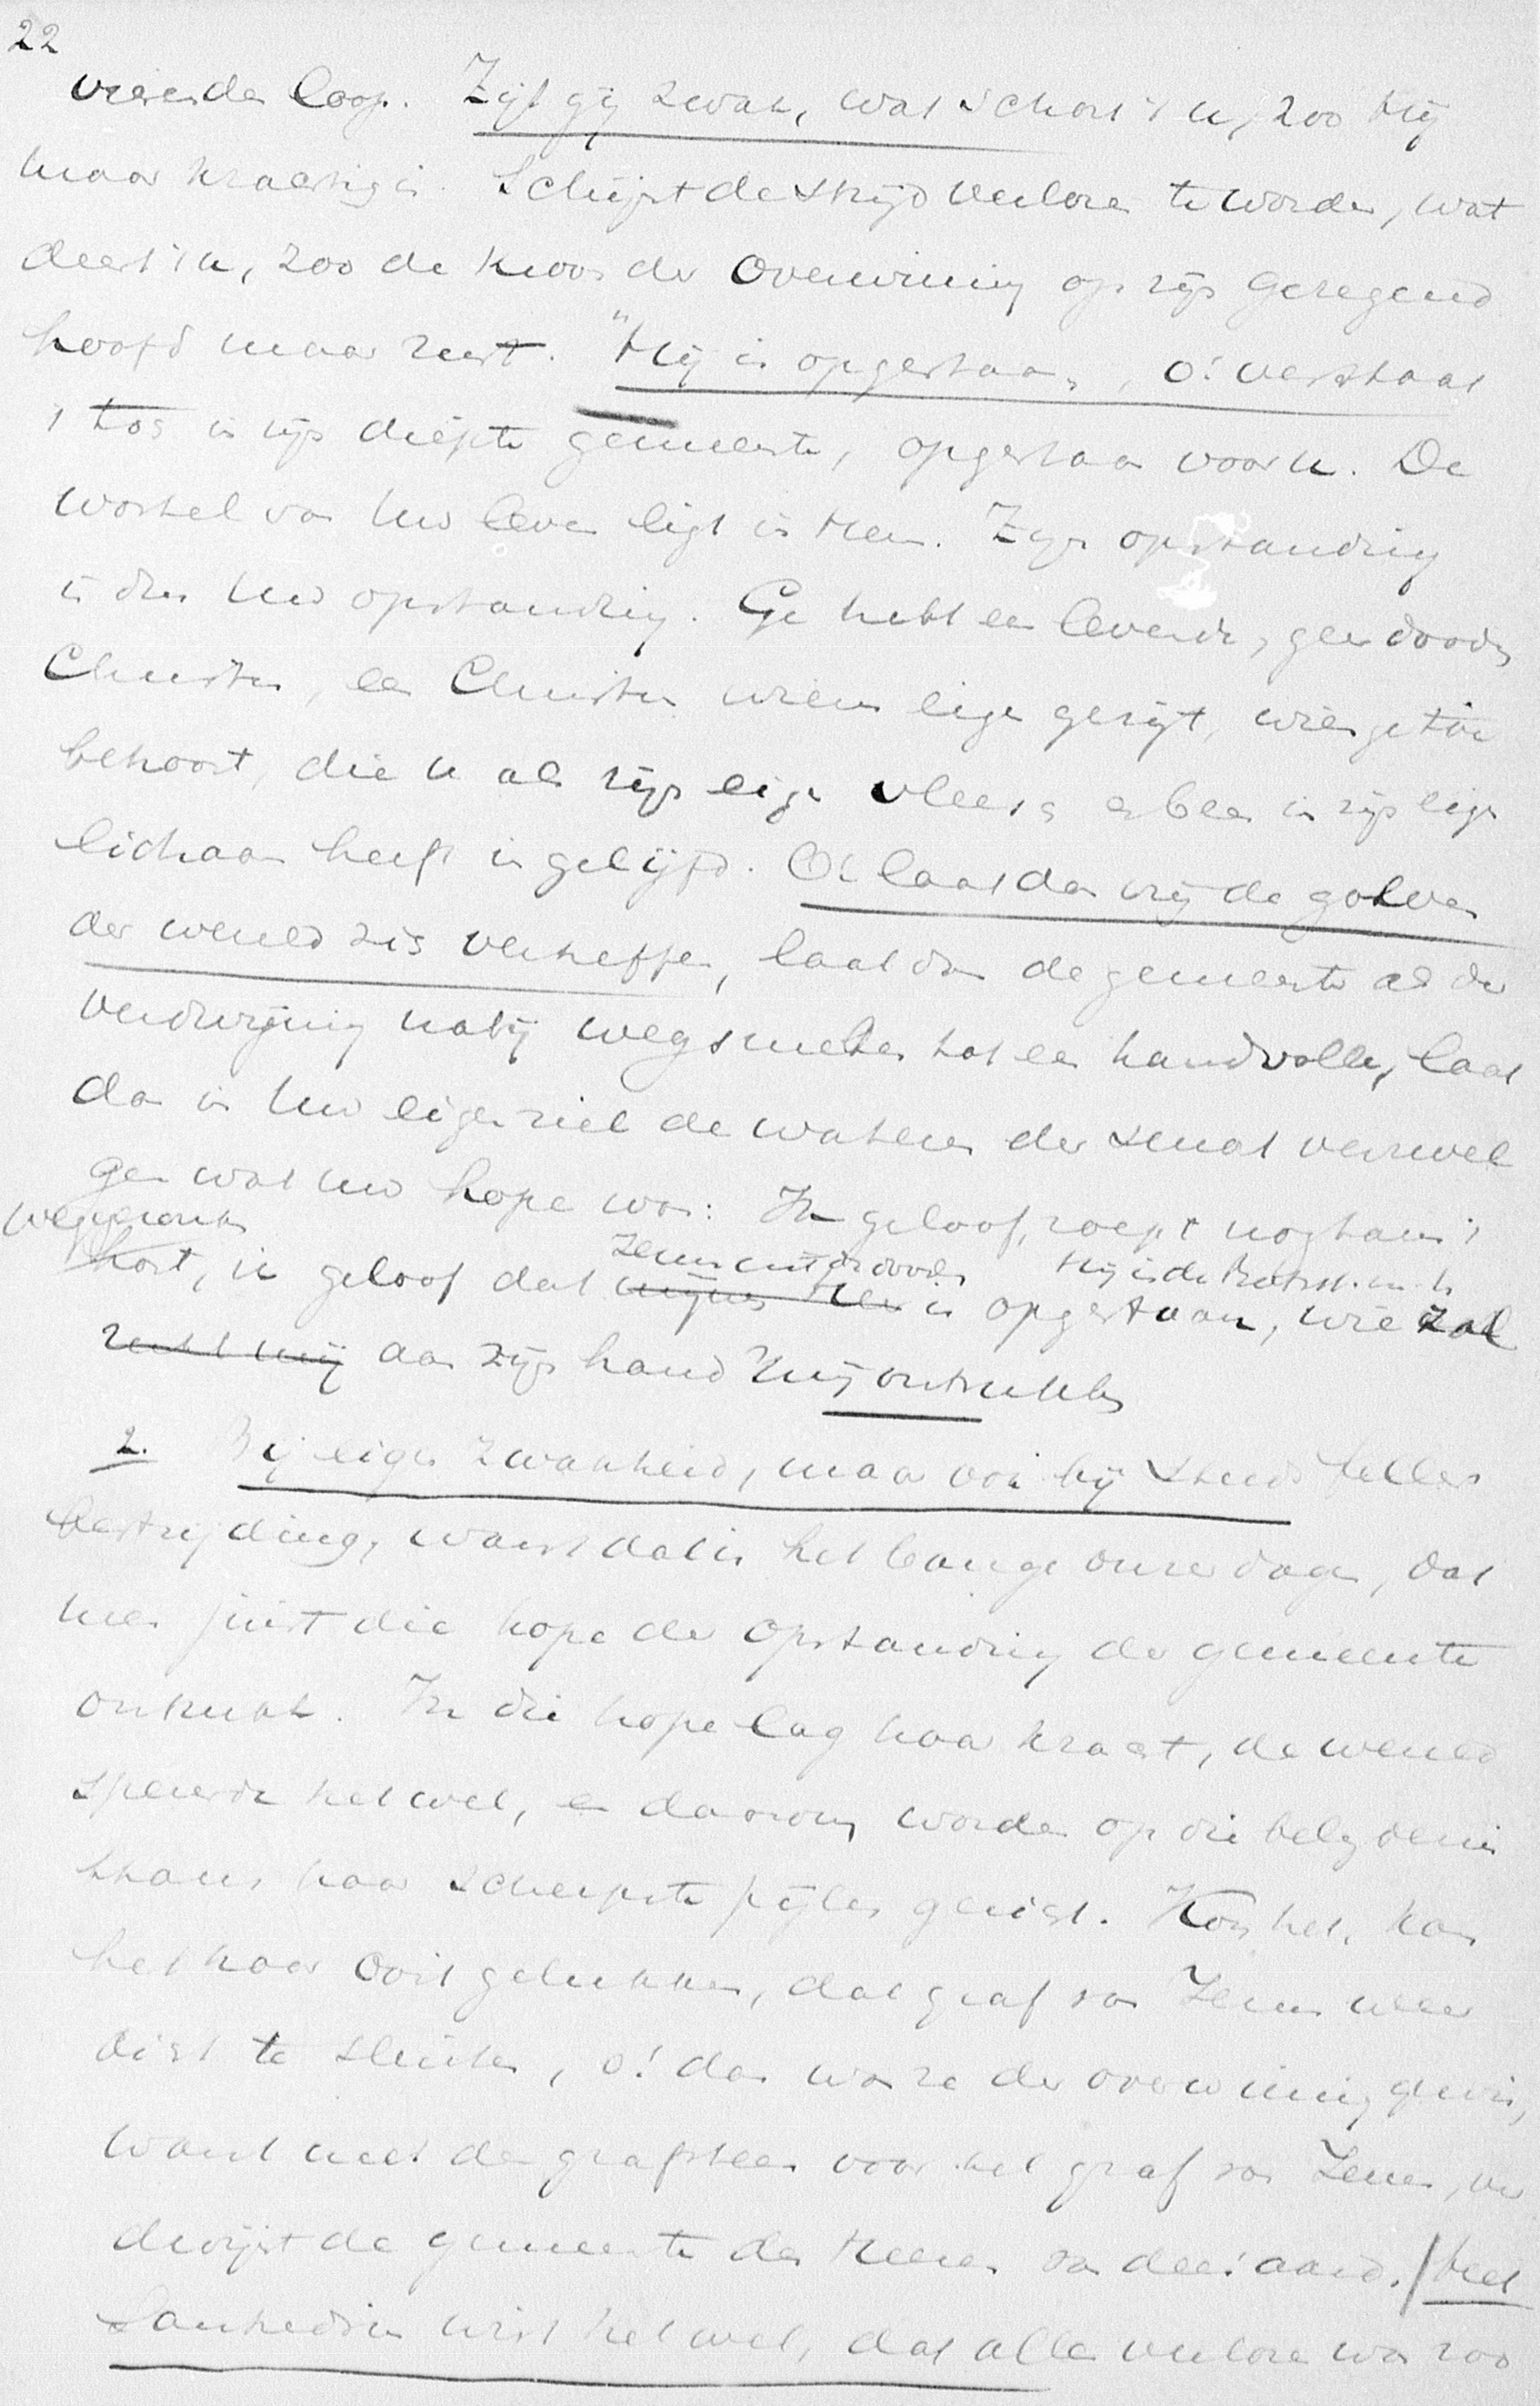 22
vreemden loop. Zijt gij zwak, wat schort 't u, zoo Hij
maar krachtig is. Schijnt de strijd verloren te worden, wat
deert 't u, zoo de kroon der overwinning op zijn gezegend
hoofd maar rust. "Hij is opgestaan, o! verstaat
't toch in zijn diepte gemeente, opgestaan voor u. De
wortel van Uw leven ligt in Hem. Zijn opstanding
is dus Uw opstanding. Ge hebt een levende, geen doode
Christus, een Christus wiens eigen ge zijt, wien ge toe
behoort, die u als zijn eigen vleesch en been in zijn eigen
lichaam heeft ingelijfd. O! laat dan vrij de golven
der wereld zich verheffen, laat dan de gemeente als der
verdwijning nabij wegsmelten tot een handvolle, laat
dan in Uw eigen ziel de wateren der smart verzwel
gen wat Uw hope was: Ik geloof, roept nogthans 't
hart, ik geloof dat Jezus uit de dooden is opgestaan, Hij is de wie zal
mijne Heer
recht mij aan zijn hand mij ontrukken
2. Bij eigen zwakheid, maar ook bij steeds feller
bestrijding, want dat is het bange onzer dagen, dat
men juist die hope der opstanding der gemeente
ontrukt. In die hope lag haar kracht, de wereld
speurde het wel, en daarom worden op die belijdenis
thans haar scherpste pijlen gericht. Kon het, kon
het haar ooit gelukken, dat graf van Jezus weer
dicht te sluiten, o! dan ware de overwinning gewis,
want met den grafsteen voor het graf van Jezus, ver
dwijnt de gemeente des Heeren van deez' aard. / Het
Sanhedrin wist het wel, dat alles verloren was zoo